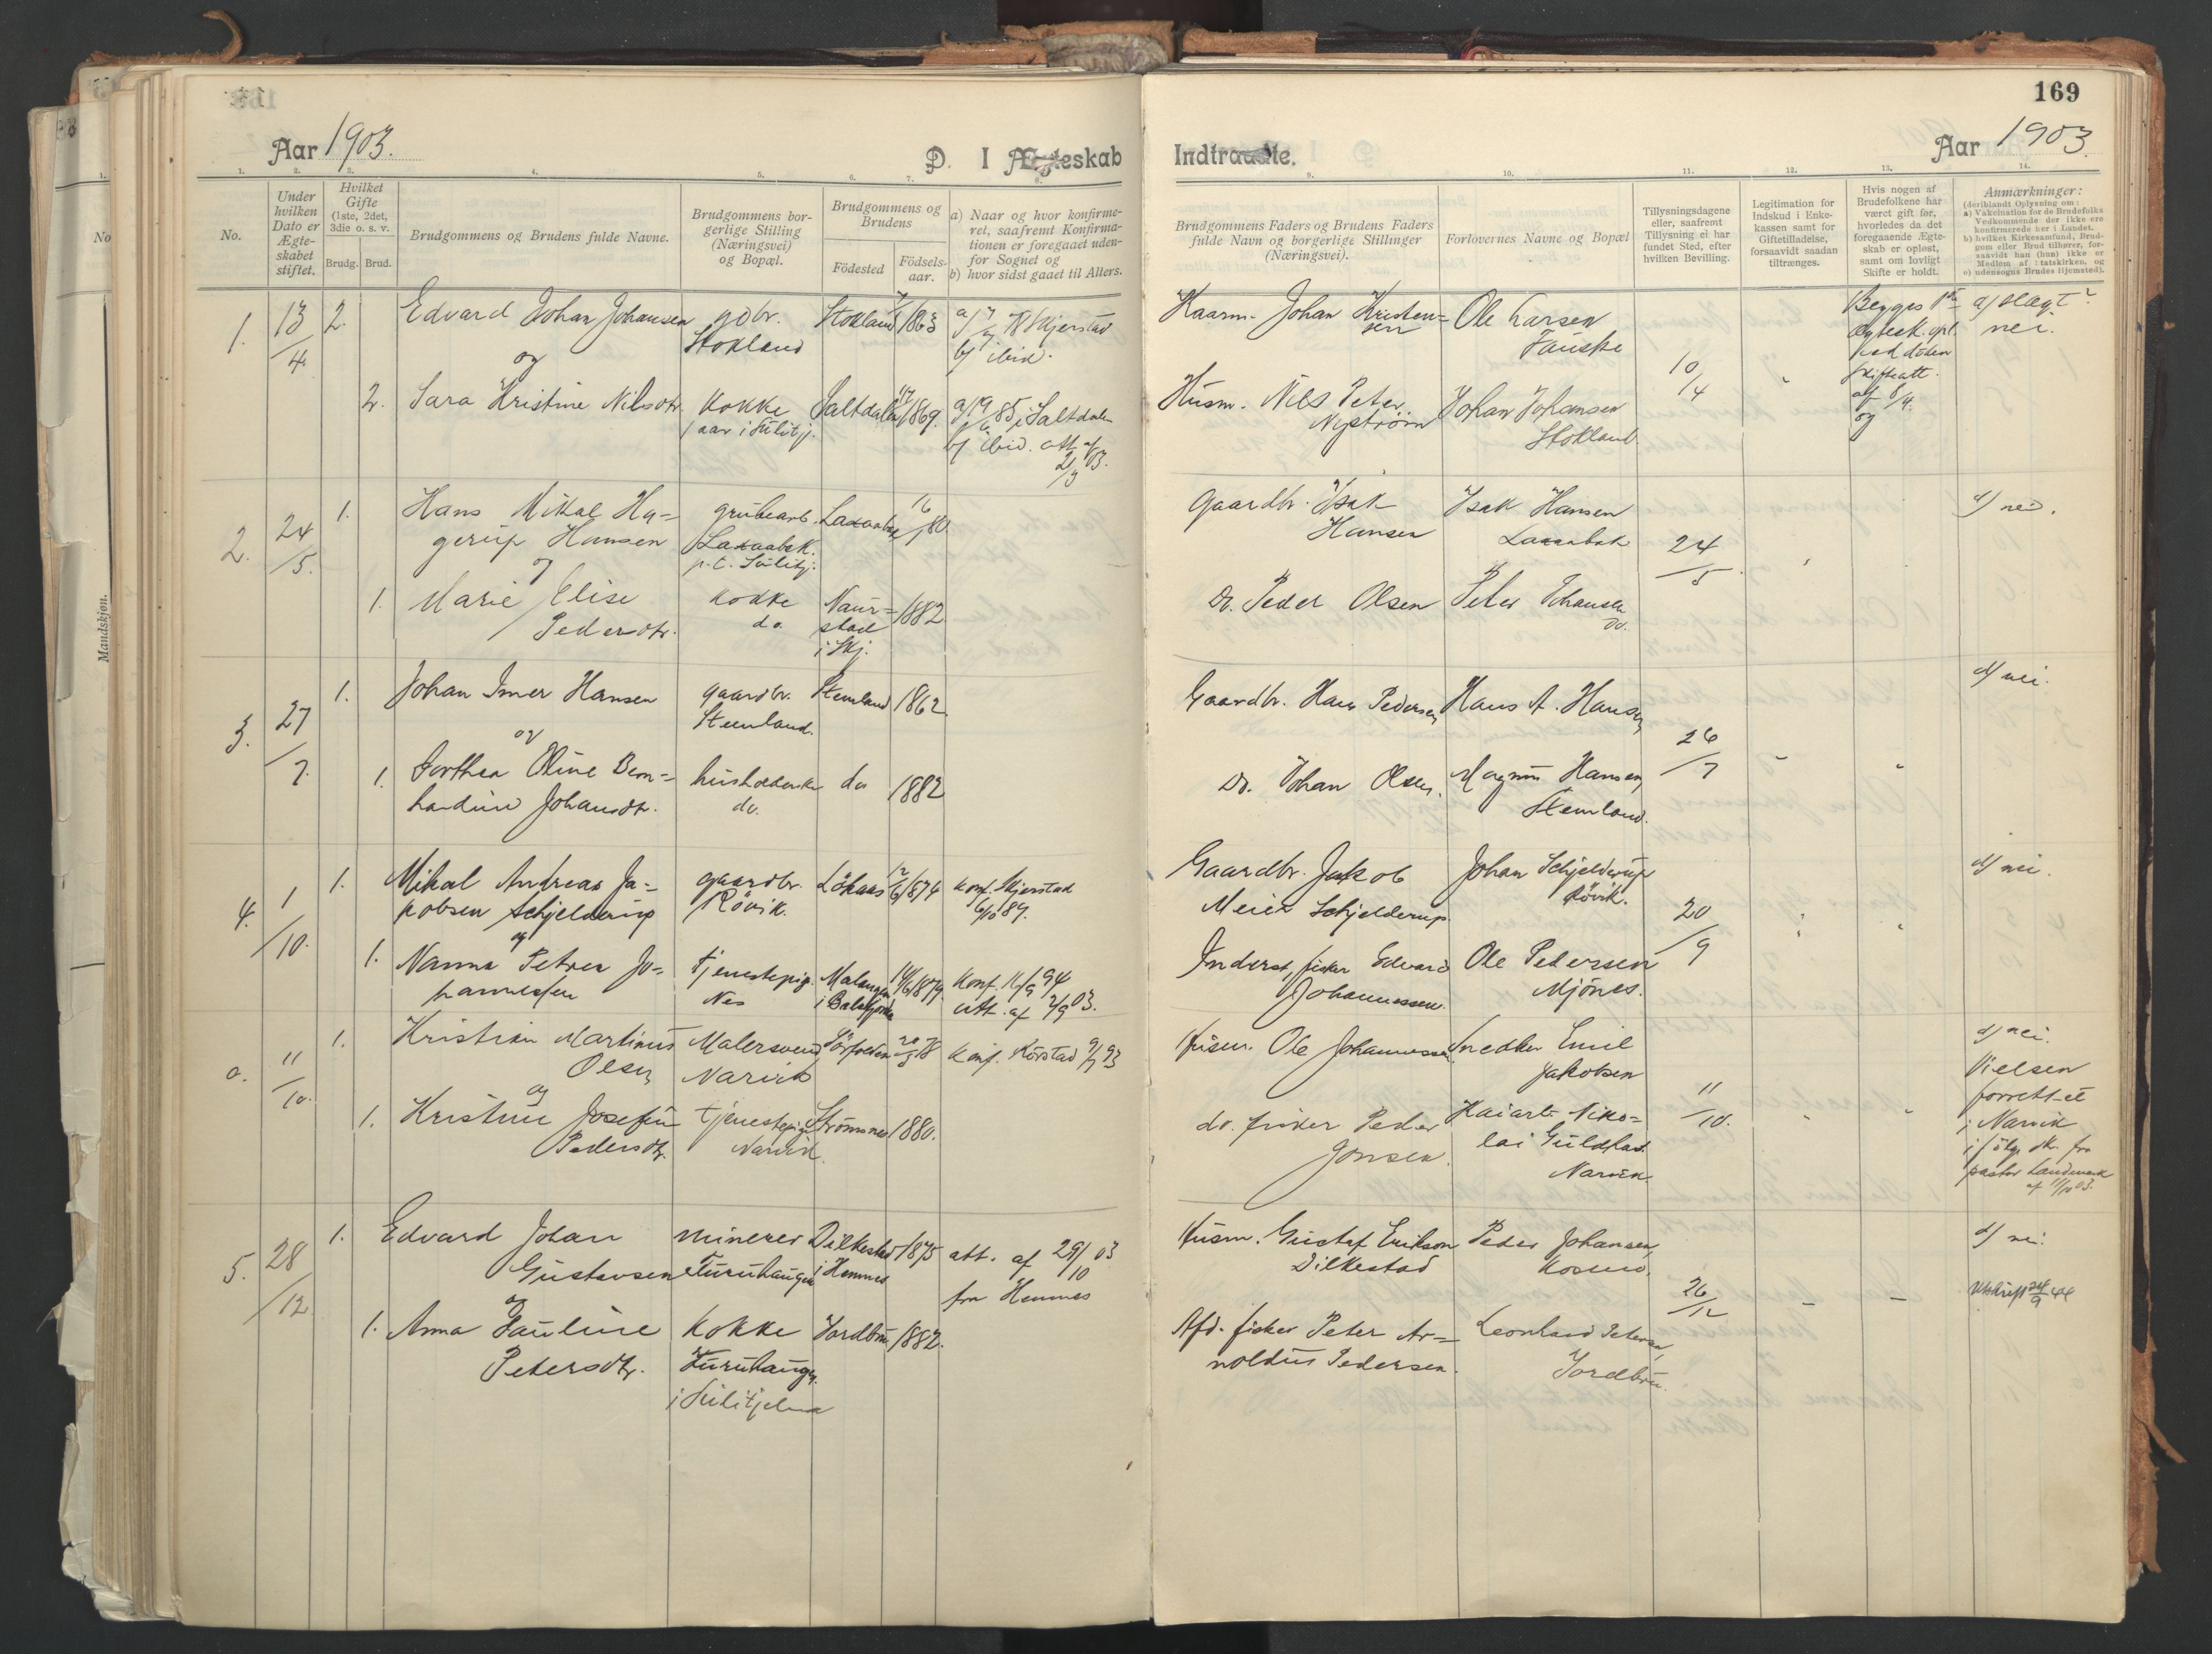 169
Aar 1903.
D. I Ægteskab
Indtraadte.
Aar 1903.
1. 2. 3. 4. 5. 6. 7. 8.
9. 10. 11. 12. 13. 14.
No.
Under hvilken Dato er Ægteskabet stiftet.
Hvilket Gifte (1ste, 2det, 3die o. s. v.
Brudg. Brud.
Brudgommens og Brudens fulde Navne.
Brudgommens borgerlige Stilling (Næringsvei) og Bopæl.
Brudgommens og Brudens
Födested
Födselsaar.
a) Naar og hvor konfirmeret, saafremt Konfirmationen er foregaaet udenfor Sognet og
b) hvor sidst gaaet til Alters.
Brudgommens Faders og Brudens Faders fulde Navn og borgerlige Stillinger (Næringsvei).
Forlovernes Navne og Bopæl
Tillysningsdagene eller, saafremt Tillysning ei har fundet Sted, efter hvilken Bevilling.
Legitimation for Indskud i Enkekassen samt for Giftetilladelse, forsaavidt saadan tiltrænges.
Hvis nogen af Brudefolkene har været gift för, hvorledes da det foregaaende Ægteskab er oplöst, samt om lovligt Skifte er holdt.
Anmærkninger:
(deriblandt Oplysning om:
a) Vakcination for de Brudefolks Vedkommende der ikke ere konfirmerede her i Landet.
b) hvilket Kirkesamfund, Brudgom eller Brud tilhører, forsaavidt han (hun) ikke er Medlem af Statskirken, og
c) udensogns Brudes Hjemsted).
1. 13/4. 2. Edvard Johan Johansen gdbr. Stokland 1863 Skjerstad
og Stokland b/ ibid.
2. Sara Kristine Nilsdtr. kokke Saltdalen 1869. i Saltdalen
1 aar i Sulitj. b/ ibid. att. af
Johan Kristensen Ole Larsen Begges 1ste a) slægt?
Fauske nei.
10/4 ved döden
Husm. Nils Peter Johan Johansen skifteatt.
Nyström Stokland af 8/4.
og
2. 24/5. 1. Hans Mikal Hagerup Hansen grubearb. 16/ 80
og p.t. Sulitj.
1. Marie Elise kokke Naurstad 1882
Pedersdtr. do. i Skj.
Gaardbr. Isak Isak Hansen d/ nei.
Hansen 24/5
Do. Peder Olsen Peter Johansen
do.
3. 27/7. 1. Johan Imer Hansen gaardbr. Stemland 1862
og Stemland.
1. Dorthea Oline Bernhardine Johansdtr. husholderske do 1882
do.
Gaardbr. Hans Pedersen Hans A. Hansen d/ nei.
26/7
Do. Johan Olsen. Magnus Hansen
Stemland.
4. 1/10. 1. Mikal Andreas Jakobsen Schjelderup gaardbr. Lökaas 1874 konf. Skjerstad
og Rövik. 89.
1. Nanna Petrea Johannesen tjenestepig. Malangen 14/6 1879. Konf. 94
Nes i Balsfjorden att. af 2/9 03.
Gaardbr. Jakob Johan Schjelderup d/ nei.
Meier Schjelderup Rövik.
20/9
Inderst, fisker Edvard Ole Pedersen
Johannessen. Mjönes.
o. 11/10. 1. Kristian Martinus Malersvend, Sörfolden 78 konf. Rörstad 93
Olsen Narvik
og
1. Kristine Josefine tjenestepige Strömsnes 1880.
Pedersdtr. Narvik.
Husm. Ole Johannessen Snedker Emil d/ nei.
Jakobsen Vielsen
11/10. forrettet
do. fisker Peder Nikolai i Narvik
Jonsen. Narvik. pastor Landmark
af 11/10 03.
5. 28/12 1. Edvard Johan minerer Dilkestad 1875 att. af 29/10 03
Gustavsen Furuhaugen i Hemnes fra Hemnes
og
1. Anna Pauline kokke Jordbru 1882.
Petersdtr. Furuhaugen
i Sulitjelma
Husm. Gustaf Erikson Peder Johansen, d/ nei.
Dilkestad Kosmo.
26/12 Utskrift 24/9 44
fisker Peter Arnoldus Pedersen. Leonhard Petersen,
Jordbru.
Mandskjøn.